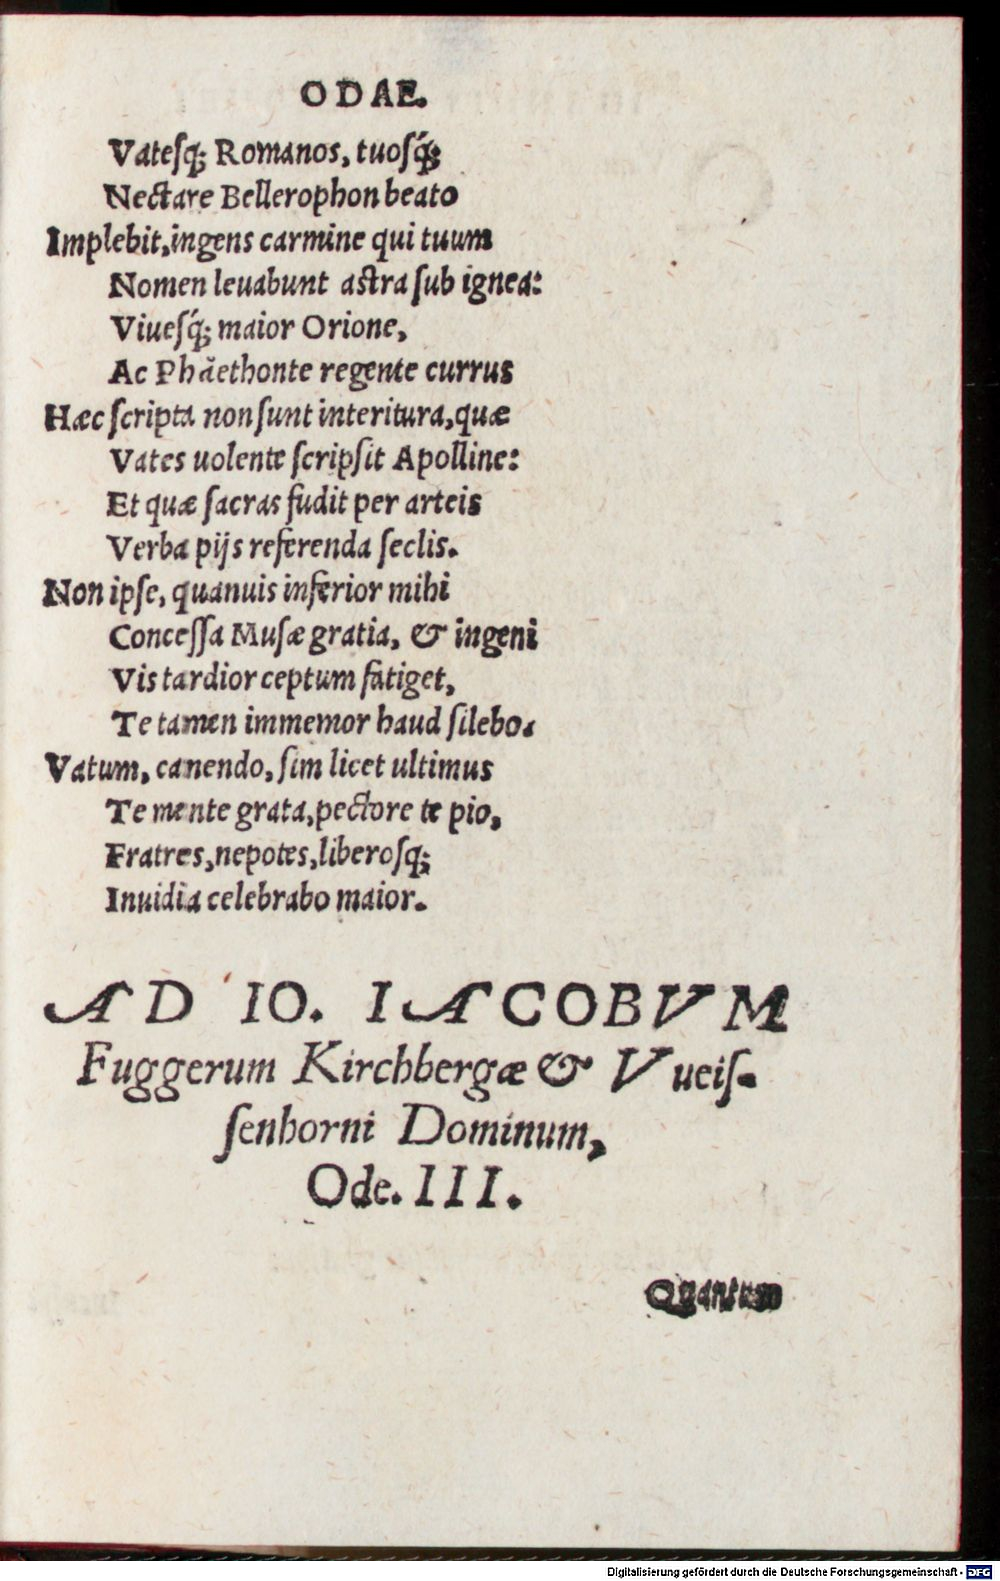 ODAE.
Vatesq́; Romanos, tuosq́;
Nectare Bellerophon beato
Implebit, ingens carmine qui tuum
Nomen leuabunt astra sub ignea:
Viuesq́; maior Orione,
Ac Phäethonte regente currus
Hæc scripta non sunt interitura, quæ
Vates uolente scripsit Apolline:
Et quæ sacras fudit per arteis
Verba pijs referenda seclis.
Non ipse, quanuis inferior mihi
Concessa Musæ gratia, & ingeni
Vis tardior ceptum fatiget,
Te tamen immemor haud silebo.
Vatum, canendo, sim licet ultimus
Te mente grata, pectore te pio,
Fratres, nepotes, liberosq;
Inuidia celebrabo maior.
AD IO. IACOBVM
Fuggerum Kirchbergæ & Vueis-
senhorni Dominum,
Ode. III.
Quantum
Digitalisierung gefördert durch die Deutsche Forschungsgemeinschaft - DFG